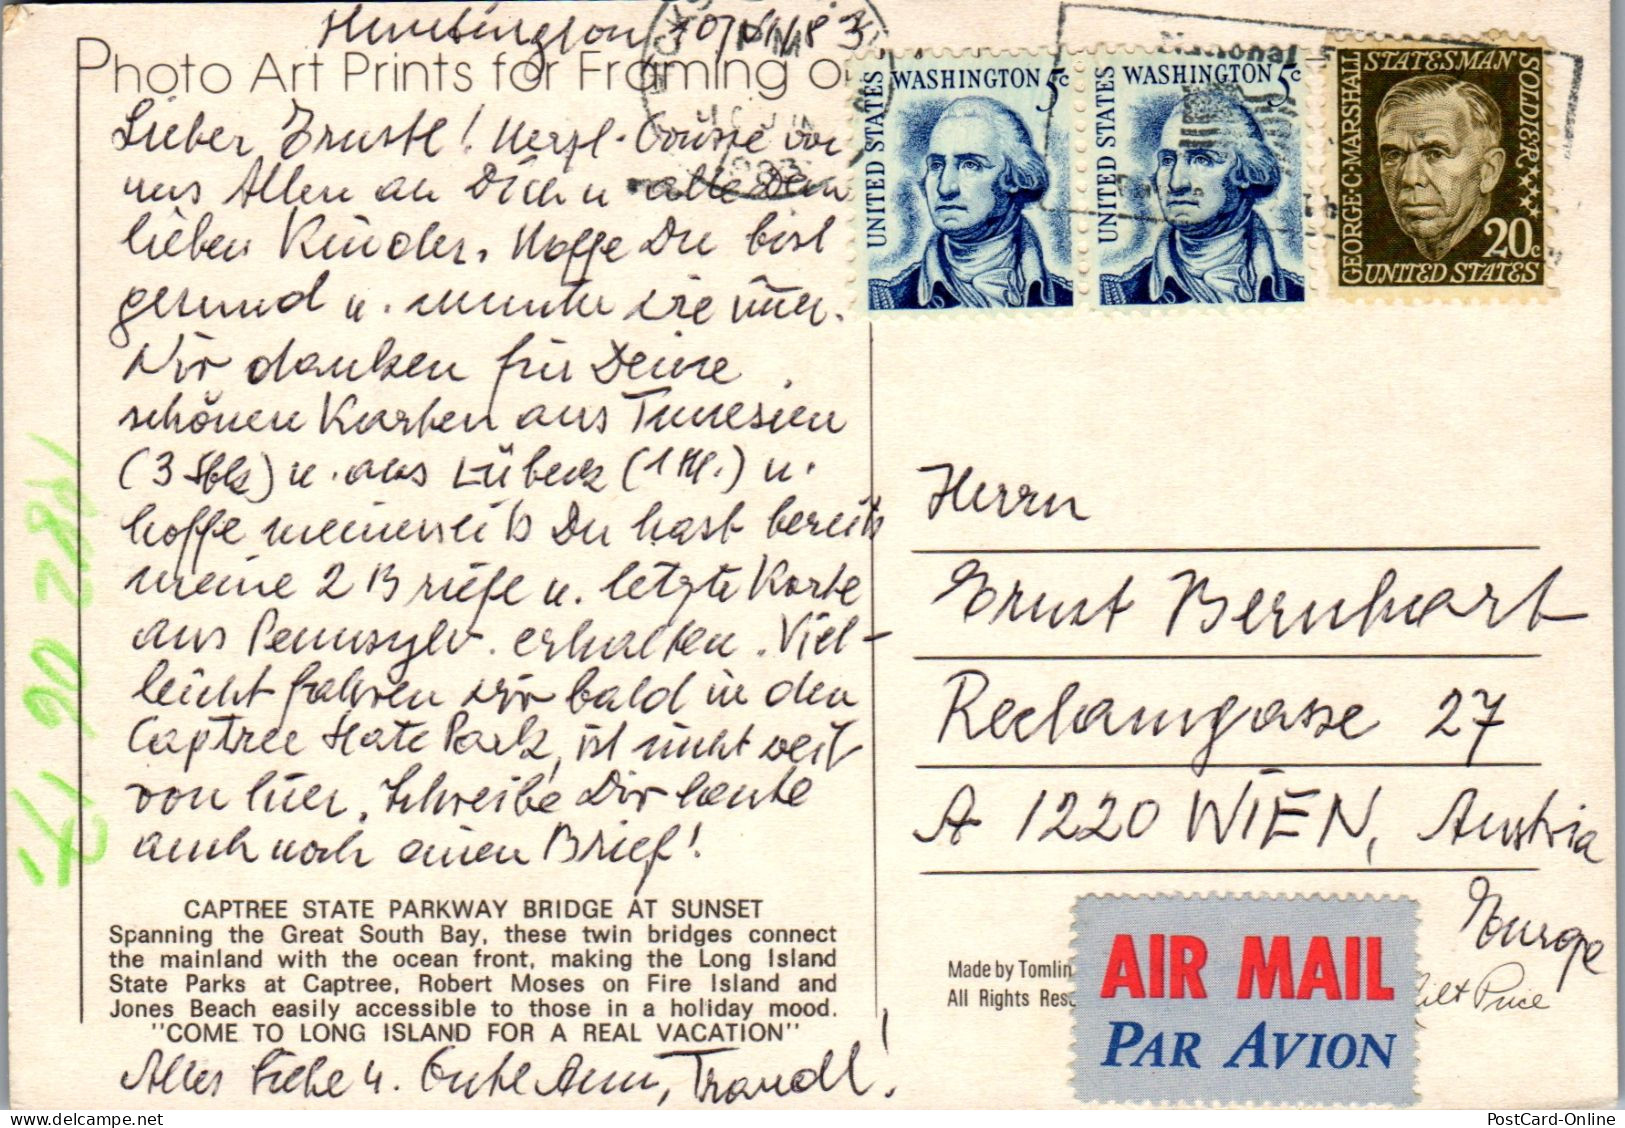 Huntington 10/VI/83
Photo Art Prints for Framing or
Lieber Ernstl! Herzl. Grüsse von
uns Allen an Dich u alle Dein
lieben Kinder. Hoffe Du bist
gesund u. munter wie immer.
Wir danken für Deine
schönen Karten aus Tunesien
(3 Stk) u. aus Lübeck (1 Stk.) u.
hoffe meinerseits Du hast bereits
meine 2 Briefe u. letzte Karte
aus Pennsylv. erhalten. Viel-
leicht fahren wir bald in den
Captree State Park, ist nicht weit
von hier. Schreibe Dir heute
auch noch einen Brief!
CAPTREE STATE PARKWAY BRIDGE AT SUNSET
Spanning the Great South Bay, these twin bridges connect
the mainland with the ocean front, making the Long Island
State Parks at Captree, Robert Moses on Fire Island and
Jones Beach easily accessible to those in a holiday mood.
"COME TO LONG ISLAND FOR A REAL VACATION"
Alles Liebe u. Gute Ann, Traudl!
UNITED STATES
WASHINGTON 5c
UNITED STATES
WASHINGTON 5c
GEORGE·C·MARSHALL
STATESMAN
SOLDIER
20c
UNITED STATES
National
1983
Herrn
Ernst Bernhart
Reclamgasse 27
A 1220 WIEN, Austria
Europe
Made by Tomlin
All Rights Res
Milt Price
AIR MAIL
PAR AVION
PostCard-Online